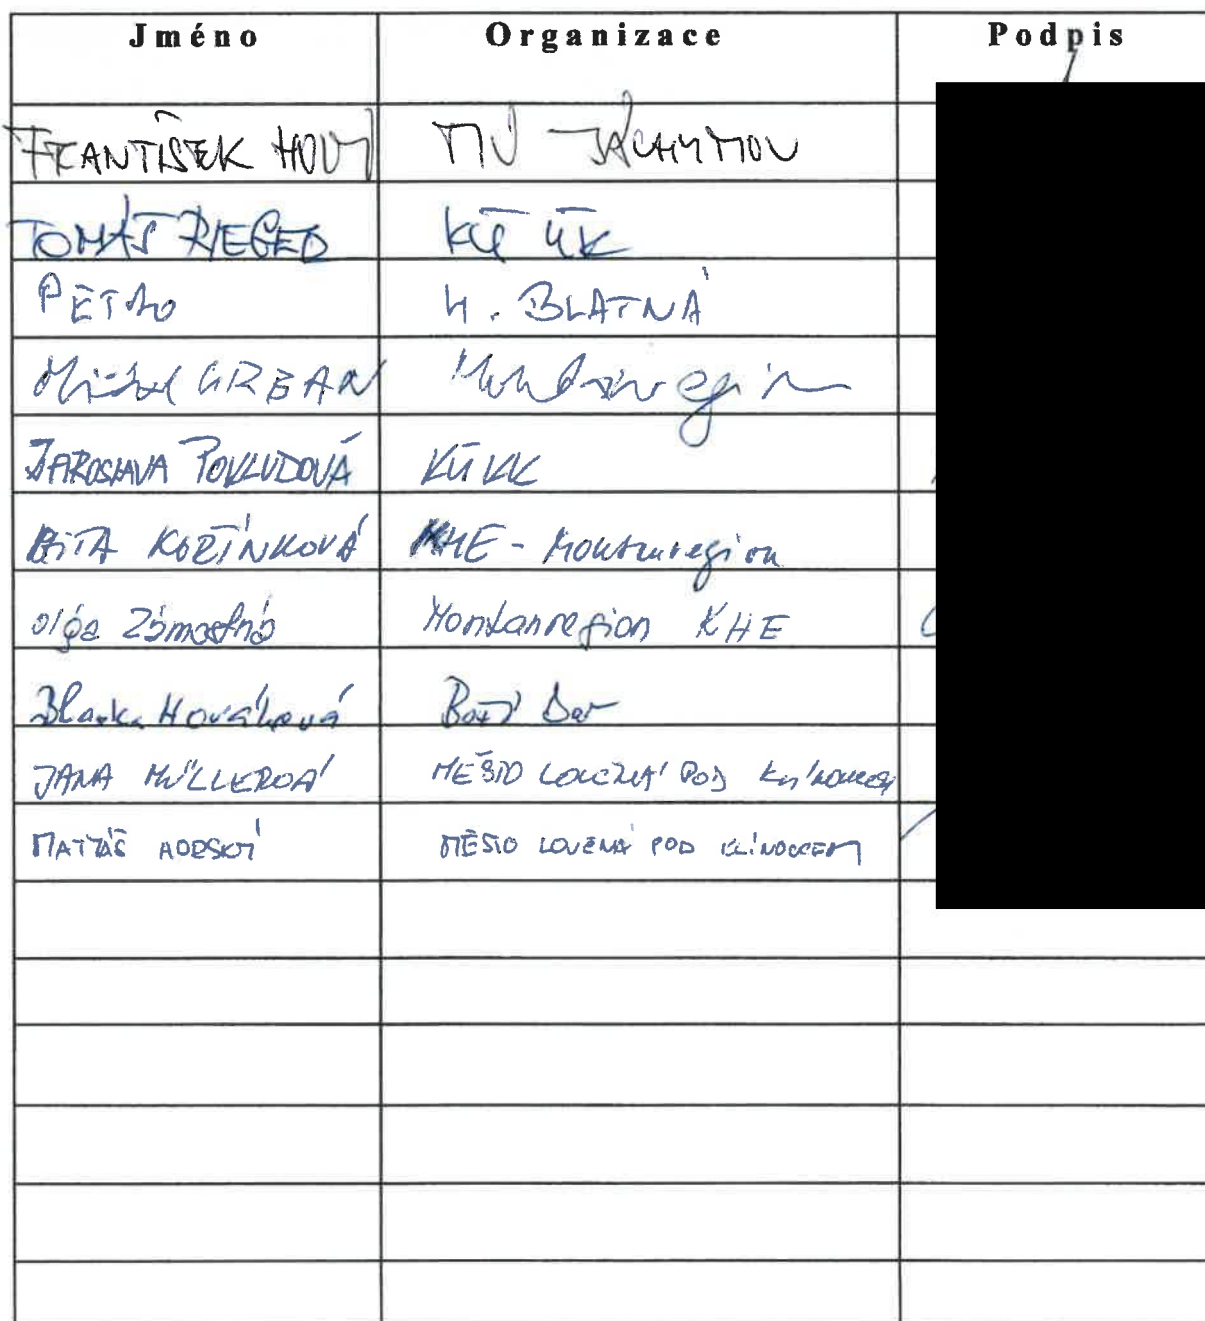 Jméno Organizace Podpis
FRANTIŠEK HOLÝ MÚ JÁCHYMOV
TOMÁŠ RIEGER KÚ ÚK
H. BLATNÁ
Michal URBAN Montanregion
JAROSLAVA POKLUDOVÁ KÚ KK
KOŘÍNKOVÁ KHE - Montanregion
Olga Zámostná Montanregion KHE
Blanka Nováková Boží Dar
JANA MÜLLEROVÁ MĚSTO LOUČNÁ POD KLÍNOVCEM
MATYÁŠ MĚSTO LOUČNÁ POD KLÍNOVCEM